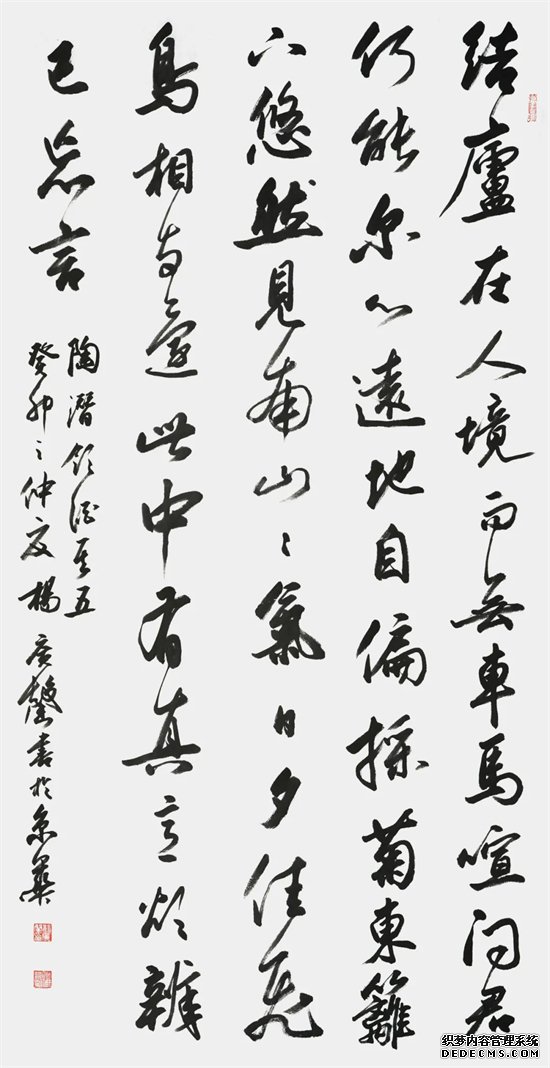 結廬在人境而無車馬喧問君
何能尔心遠地自偏採菊東籬
下悠然見南山〻氣日夕佳飛
鳥相与還此中有真意欲辨
已忘言
陶潛飲酒其五
癸卯之仲夏楊廣馨書於京華
织梦内容管理系统
DEDECMS.COM